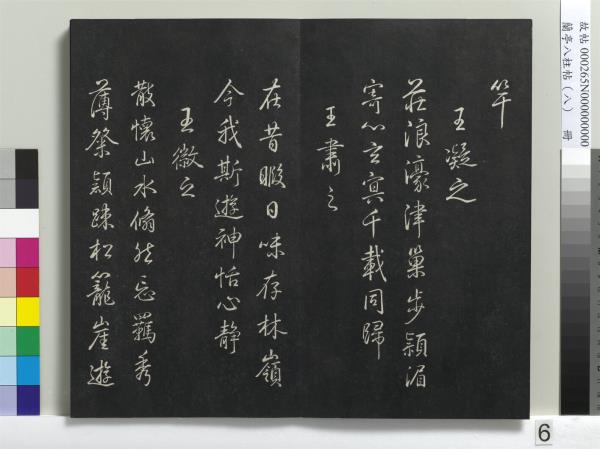 竿
王凝之
莊浪濠津巢步潁湄
寄心玄冥千載同歸
王肅之
在昔暇日味存林嶺
今我斯遊神怡心静
王徽之
散懷山水翛然忘羈秀
薄粲穎踈松籠崖遊
故帖 000265N000000000
蘭亭八柱帖（八） 冊
6